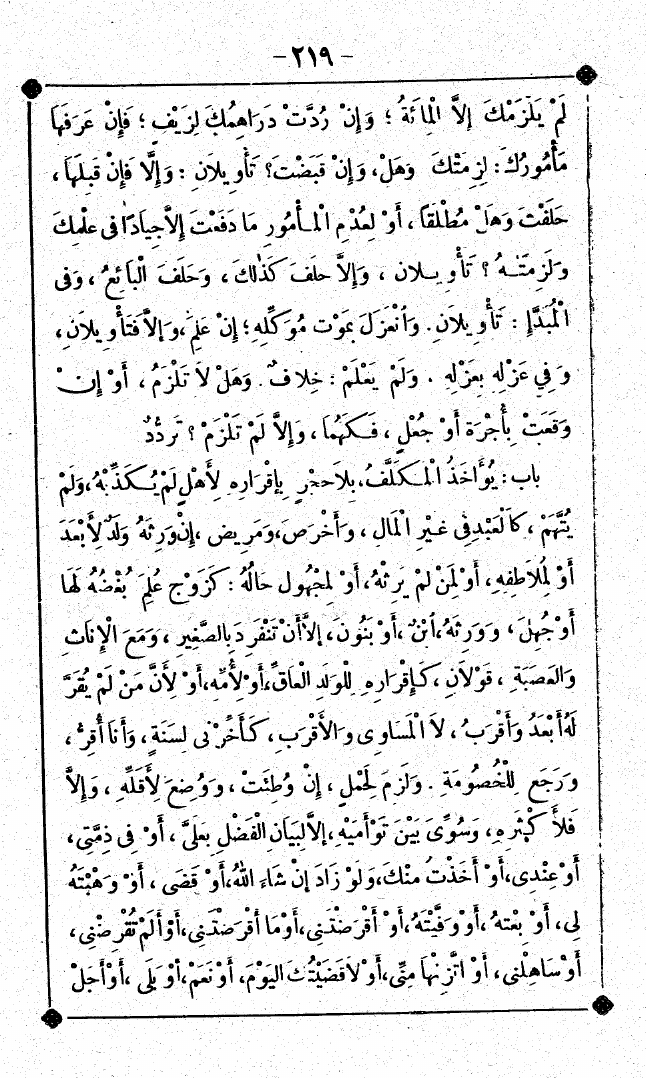 - ٢١٩ -
لَمْ يَلْزَمْكَ إِلاَّ الْمِائَةُ ؛ وَإِنْ رُدَّتْ دَرَاهِمُكَ لِزَيْفٍ ؛ فَإِنْ عَرَفَهَا
مَأْمُورُكَ: لَزِمَتْكَ وَهَلْ، وَإِنْ قَبَضْتَ؟ تَأْوِيلاَنِ : وَإِلَّا فَإِنْ قَبِلَهَا ،
حَلَفْتَ وَهَلْ مُطْلَقاً، أَوْ لِعُدْمِ الْمَأْمُورِ مَا دَفَعْتَ إِلاَّجِيَادًا فِى عِلْمِكَ
وَلَزِمَتْهُ ؟ تَأْوِيلاَنِ ، وَإِلاَّ حَلَفَ كَذٰلِكَ ، وَحَلَفَ الْبَائِعُ ، وَفِى
الْمُبَدَّإِ : تَأْوِيلاَنِ. وَانْعَزَلَ بِمَوْتِ مُوَكِّلِهِ؛ إِنْ عَلِمَ، وَإِلاَّفَتَأْوِيلاَنِ،
وَفِي عَزْلِهِ بِعَزْلِهِ . وَلَمْ يَعْلَمْ : خِلاَفٌ. وَهَلْ لاَ تَلْزَمُ ، أَوْ إِنْ
وَقَعَتْ بِأُجْرَةٍ أَوْ جُعْلٍ ، فَكَهُمَا ، وَإِلاَّ لَمْ تَلْزَمْ ؟ تَرَدُّدٌ
باب: يُؤَاخَذُ الْمُكَلَّفُ، بِلاَحَجْرٍ بِإِقْرَارِهِ لِأَهْلٍ لَمْ يُكَذِّبْهُ، وَلَمْ
يُتَّهَمْ ، كالْعَبْدِ فِى غَيْرِ الْمَالِ ، وَأَخْرَصَ، وَمَرِيضٍ ، إِنْ وَرِثَهُ وَلَدٌ لِأَبْعَدَ
أَوْ لِمُلاَطِفِهِ، أَوْ لِمَنْ لَمْ يَرِثْهُ، أَوْ لِمَجْهُولٍ حَالُهُ : كَزَوْجٍ عُلِمَ بُغْضُهُ لَهَا
أَوْ جُهِلَ، وَوَرِثَهُ، ابْنٌ ، أَوْ بَنُونَ، إلاَّأَنْ تَنْفَرِدَ بِالصَّغِيرِ ، وَمَعَ الْإِنَاثِ
وَالْعَصَبَةِ ، قَوْلاَنِ ، كَإِقْرَارِهِ لِلْوَلَدِ الْعَاقِّ، أَوْ لِأُمِّهِ، أَوْ لِأَنَّ مَنْ لَمْ يُقَرَّ
لَهُ أَبْعَدُ وَأَقْرَبُ ، لاَ الْمَسَاوِى وَالْأَقْرَبِ ، كَأَخِّرْنِى لِسَنَةٍ ، وَأَنَا أُقِرُّ ،
وَرَجَعَ لِلْخُصُومَةِ . وَلَزِمَ لِحَمْلٍ ، إِنْ وُطِئَتْ ، وَوُضِعَ لِأَقَلِّهِ ، وَإِلاَّ
فَلأَكْثَرِهِ، وَسُوِّىَ بَيْنَ تَوْأَمَيْهِ، إِلاَّلِبَيَانِ الْفَضْلِ بِعَلَىَّ ، أَوْ فِى ذِمَّتِى،
أَوْ عِنْدِى، أَوْ أَخَذْتُ مِنْكَ، وَلَوْ زَادَ إِنْ شَاءَ اللهُ، أَوْ قَضَى ، أَوْ وَهَبْتَهُ
لِى، أَوْ بِعْتَهُ ، أَوْ وَفَّيْتَهُ، أَوْ أَقْرَضْتَنِى، أَوْمَا أَقْرَضْتَنِى، أَوْ أَلَمْ تُقْرِضْنِى،
أَوْ سَاهِلْنِى، أَوْ اتَّزِنْهَا مِنِّى، أَوْ لاَقَضَيْتُكَ الْيَوْمَ، أَوْ نَعَمْ، أَوْ بَلَى ، أَوْ أَجَلْ